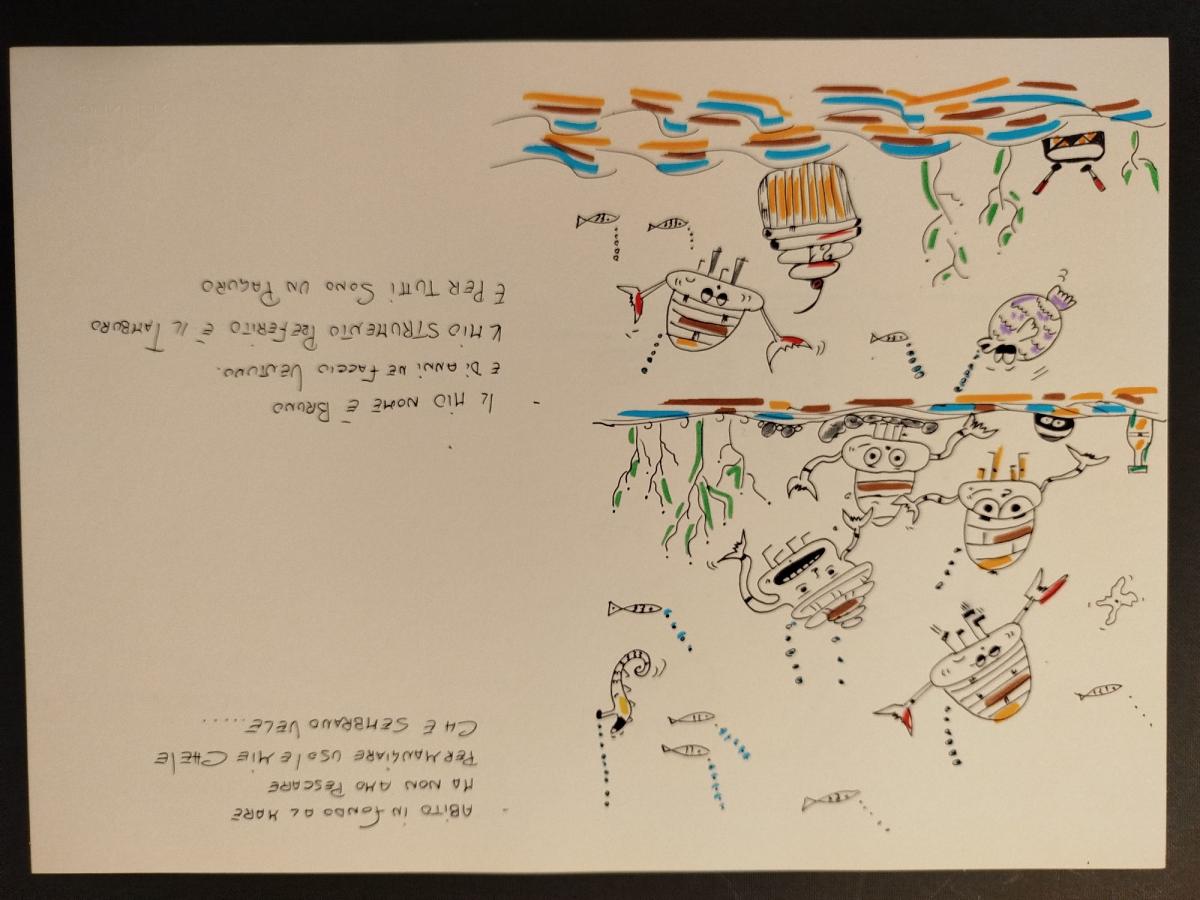 - ABITO IN FONDO AL MARE
MA NON AMO PESCARE
PER MANGIARE USO LE MIE CHELE
CHE SEMBRANO VELE......
- IL MIO NOME È BRUNO
E DI ANNI NE FACCIO VENTUNO.
IL MIO STRUMENTO PREFERITO È IL TAMBURO
E PER TUTTI SONO UN PAGURO